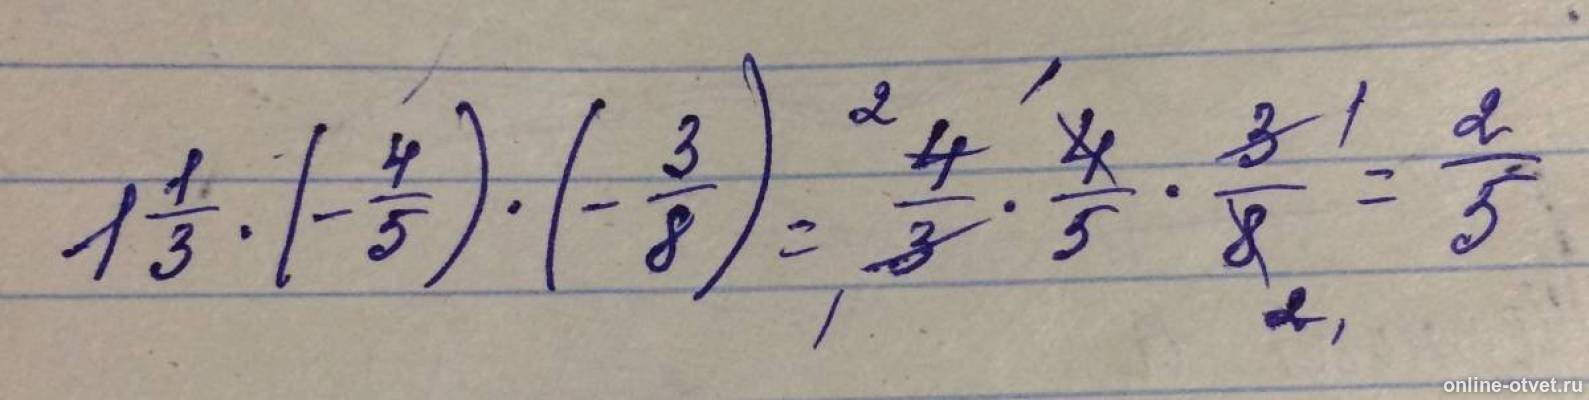 1 1/3 · (- 4/5) · (- 3/8) = 2 4/3 1 · 4/5 1 · 3/8 1 2, = 2/5
online-otvet.ru